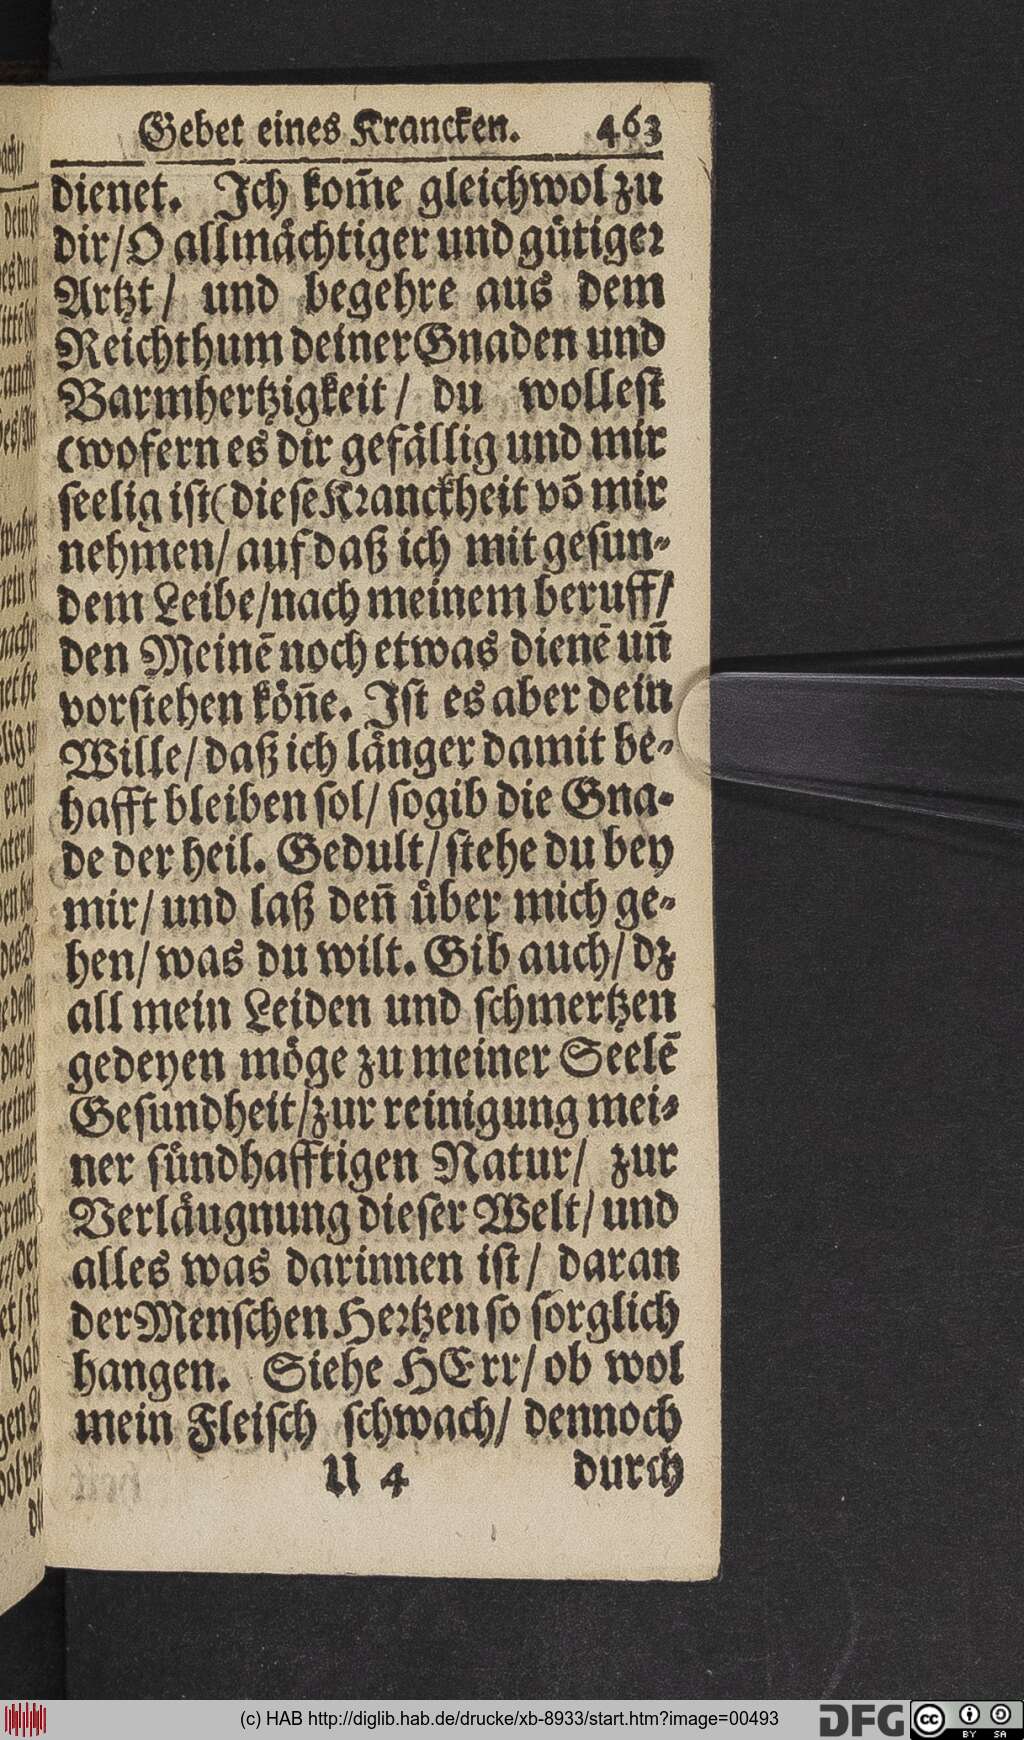 Gebet eines Krancken. 463
dienet. Ich kom̃e gleichwol zu
dir/O allmaͤchtiger und guͤtiger
Artzt/ und begehre aus dem
Reichthum deiner Gnaden und
Barmhertzigkeit/ du wollest
(wofern es dir gefaͤllig und mir
seelig ist( diese Kranckheit võ mir
nehmen/ auf daß ich mit gesun-
dem Leibe/nach meinem beruff/
den Meinẽ noch etwas dienẽ uñ
vorstehen koͤñe. Ist es aber dein
Wille/ daß ich laͤnger damit be-
hafft bleiben sol/ so gib die Gna-
de der heil. Gedult/ stehe du bey
mir/ und laß deñ uͤber mich ge-
hen/ was du wilt. Gib auch/ dz
all mein Leiden und schmertzen
gedeyen moͤge zu meiner Seelẽ
Gesundheit/zur reinigung mei-
ner suͤndhafftigen Natur/ zur
Verlaͤugnung dieser Welt/ und
alles was darinnen ist/ daran
der Menschen Hertzen so sorglich
hangen. Siehe HErr/ ob wol
mein Fleisch schwach/ dennoch
U 4 durch
(c) HAB http://diglib.hab.de/drucke/xb-8933/start.htm?image=00493
DFG
cc BY SA